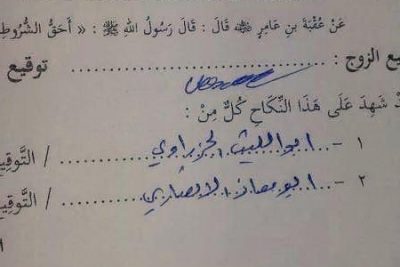 عَنْ عُقْبَةَ بنِ عَامِرٍ ﷺ قَالَ : قَالَ رَسُولُ اللهِ ﷺ : « أَحَقُّ الشُّرُوطِ
يع الزوج : ........................ توقيع
شَهِدَ عَلَى هَذَا النِّكَاحِ كُلٌّ مِنْ :
١ - ابو الليث الجزراوي ......... / التَّوقِيع
٢ - ابو معاذ الانصاري ......... / التَّوقِيع